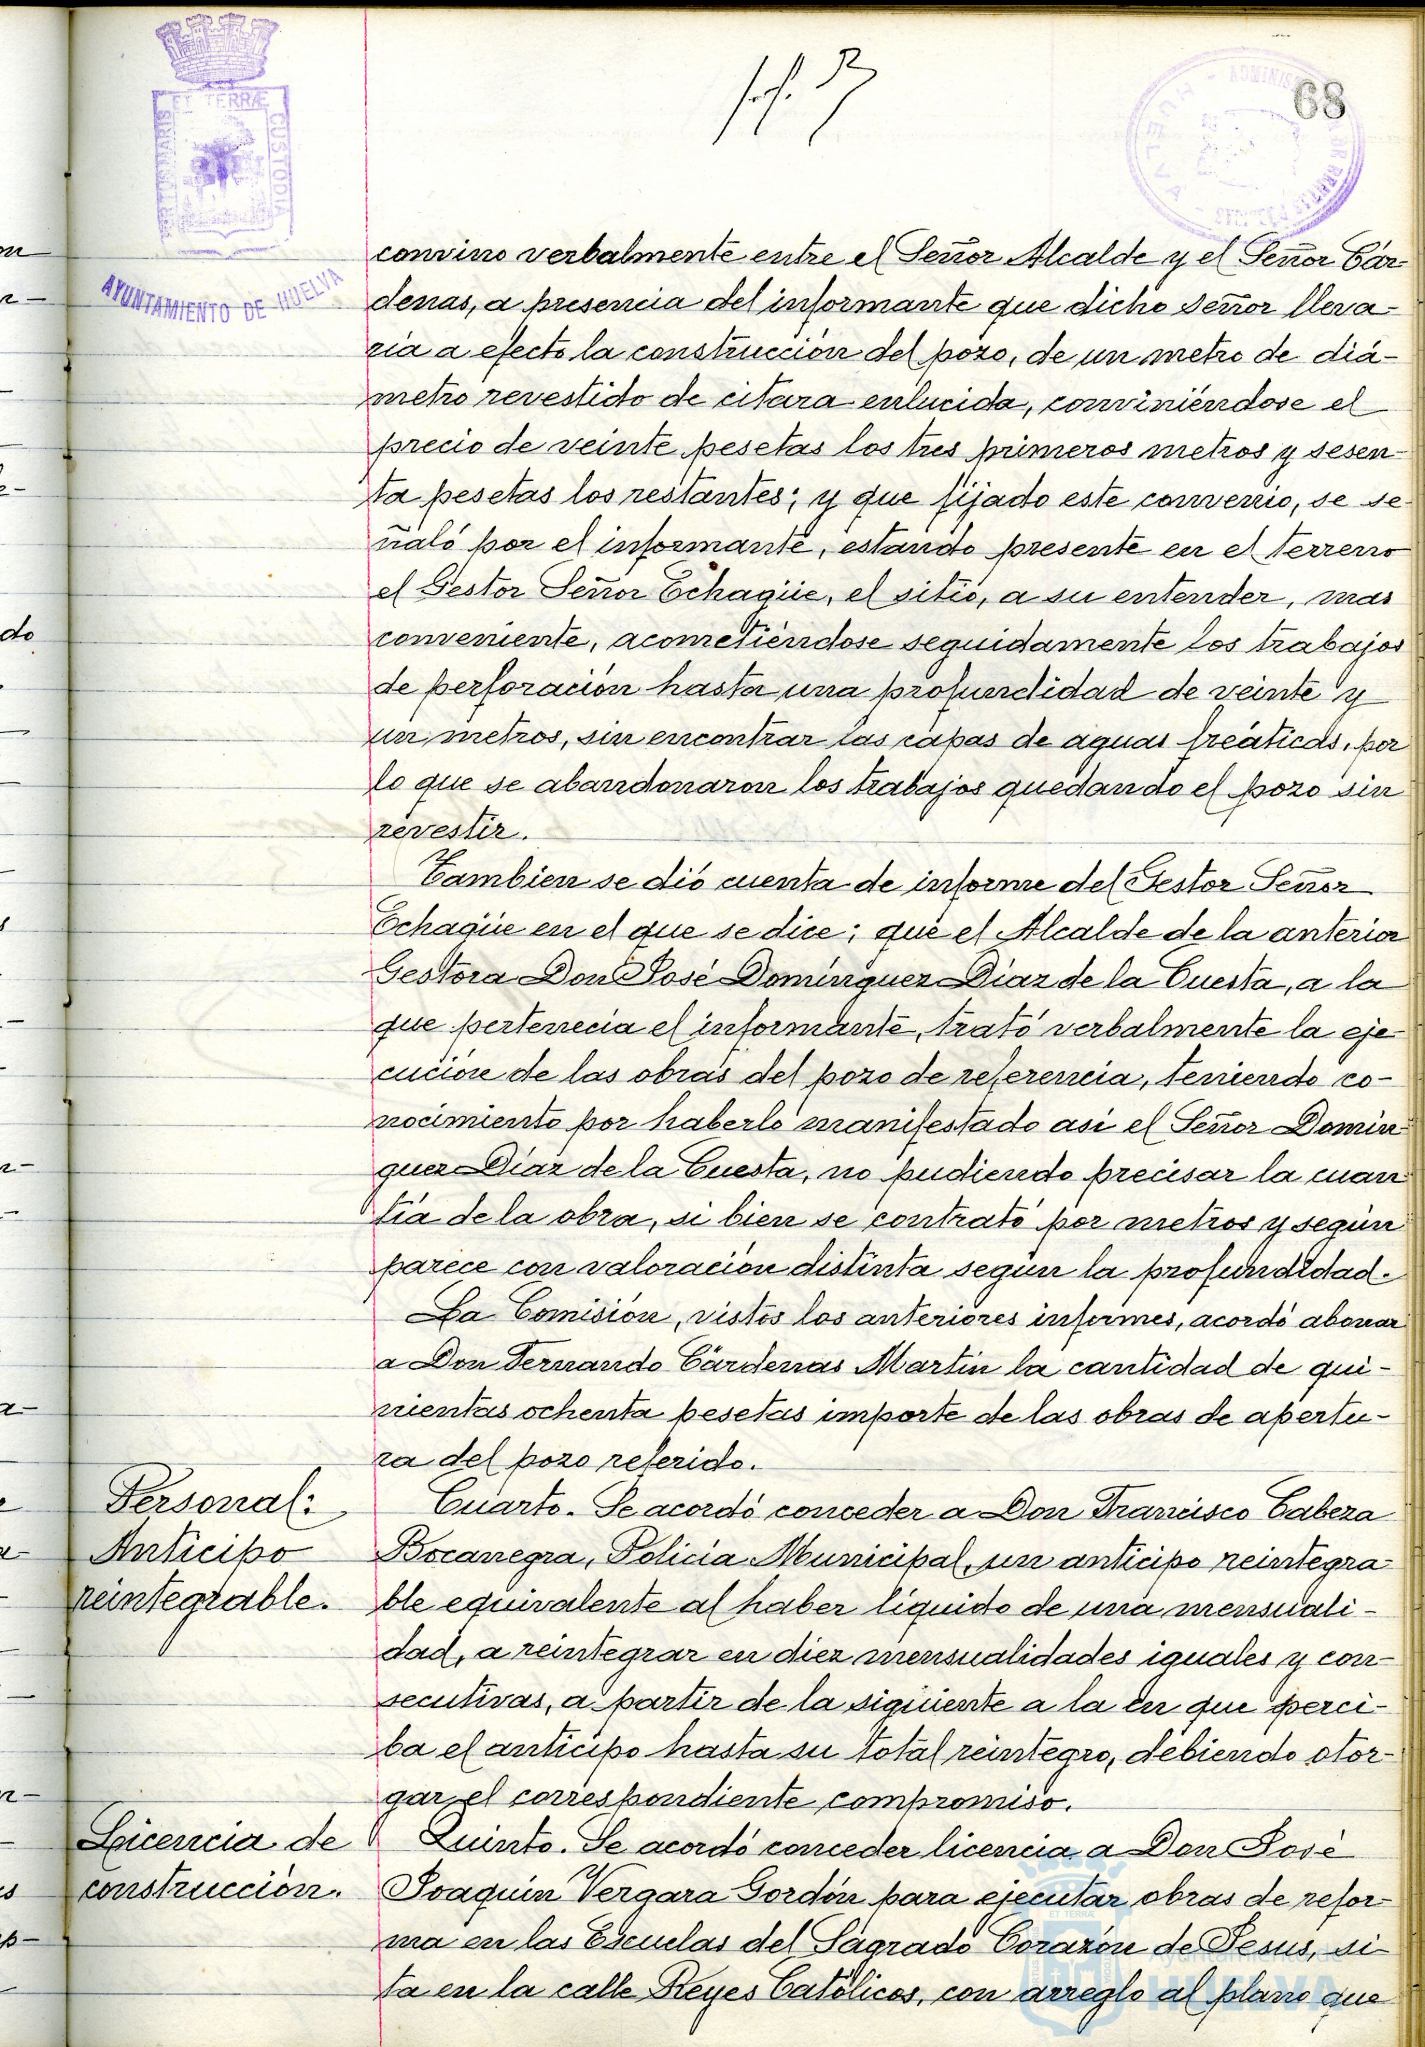 68
PORTUS MARIS ET TERRÆ CUSTODIA
AYUNTAMIENTO DE HUELVA
HUELVA
convino verbalmente entre el Señor Alcalde y el Señor Cár-
denas, a presencia del informante que dicho señor lleva-
ria a efecto la construcción del pozo, de un metro de diá-
metro revestido de citara enlucida, conviniéndose el
precio de veinte pesetas los tres primeros metros y sesen-
ta pesetas los restantes; y que fijado este convenio, se se-
ñaló por el informante, estando presente en el terreno
el Gestor Señor Echagüe, el sitio, a su entender, mas
conveniente, acometiéndose seguidamente los trabajos
de perforación hasta una profundidad de veinte y
un metros, sin encontrar las capas de aguas freáticas, por
lo que se abandonaron los trabajos quedando el pozo sin
revestir.
Tambien se dió cuenta de informe del Gestor Señor
Echagüe en el que se dice; que el Alcalde de la anterior
Gestora Don José Domínguez Díaz de la Cuesta, a la
que pertenecia el informante, trató verbalmente la eje-
cución de las obras del pozo de referencia, teniendo co-
nocimiento por haberlo manifestado asi el Señor Domín-
guez Díaz de la Cuesta, no pudiendo precisar la cuan-
tía de la obra, si bien se contrató por metros y según
parece con valoración distinta según la profundidad.
La Comisión, vistos los anteriores informes, acordó abonar
a Don Fernando Cárdenas Martín la cantidad de qui-
nientas ochenta pesetas importe de las obras de apertu-
ra del pozo referido.
Personal:
Anticipo
reintegrable.
Cuarto. Se acordó conceder a Don Francisco Cabeza
Bocanegra, Policía Municipal, un anticipo reintegra-
ble equivalente al haber líquido de una mensuali-
dad, a reintegrar en diez mensualidades iguales y con-
secutivas, a partir de la siguiente a la en que perci-
ba el anticipo hasta su total reintegro, debiendo otor-
gar el correspondiente compromiso.
Licencia de
construcción.
Quinto. Se acordó conceder licencia a Don José
Joaquín Vergara Gordón para ejecutar obras de refor-
ma en las Escuelas del Sagrado Corazón de Jesus, si-
ta en la calle Reyes Católicos, con arreglo al plano que
Ayuntamiento de
HUELVA